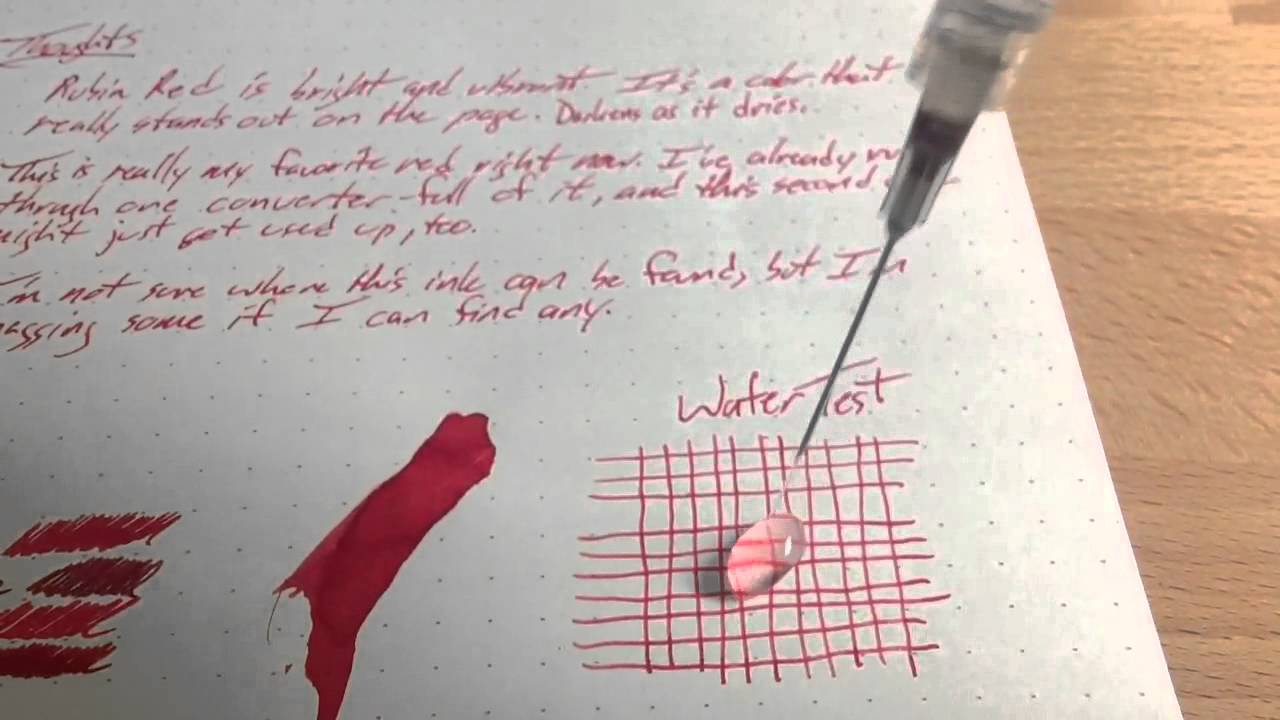 Thoughts
Rubin Red is bright and vibrant. It's a color that
really stands out on the page. Darkens as it dries.
This is really my favorite red right now. I've already
through one converter-full of it, and this second
might just get used up, too.
I'm not sure where this ink can be found, but I'm
some if I can find any.
Water Test